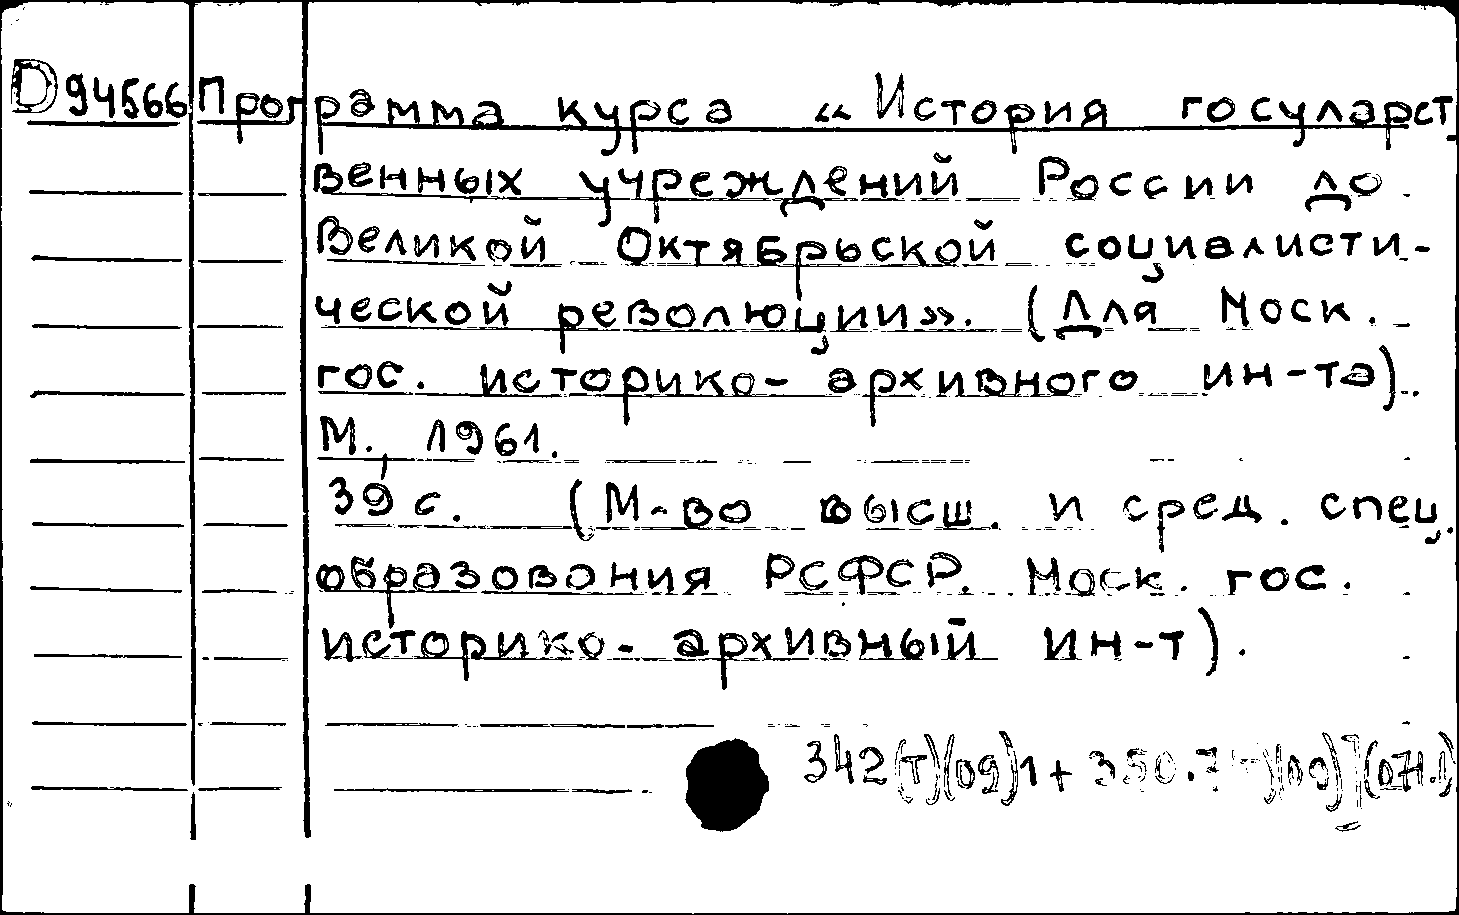 D94566 Программа курса «История государст
венных учреждений России до
Великой Октябрьской социалисти-
ческой революции». (Для Моск.
гос. историко-архивного ин-та).
М., 1961.
39 с. (М-во высш. и сред. спец.
образования РСФСР. Моск. гос.
историко-архивный ин-т).
342(Т)(09)1+